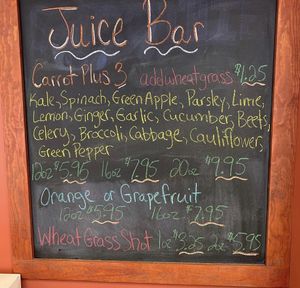 Juice Bar
Carrot Plus 3 add wheatgrass $1.25
Kale, Spinach, Green Apple, Parsley, Lime,
Lemon, Ginger, Garlic, Cucumber, Beets,
Celery, Broccoli, Cabbage, Cauliflower,
Green Pepper
12oz $5.95 16oz $7.95 20oz $9.95
Orange or Grapefruit
12oz $5.95 16oz $7.95
Wheat Grass Shot 1oz $3.25 2oz $5.95